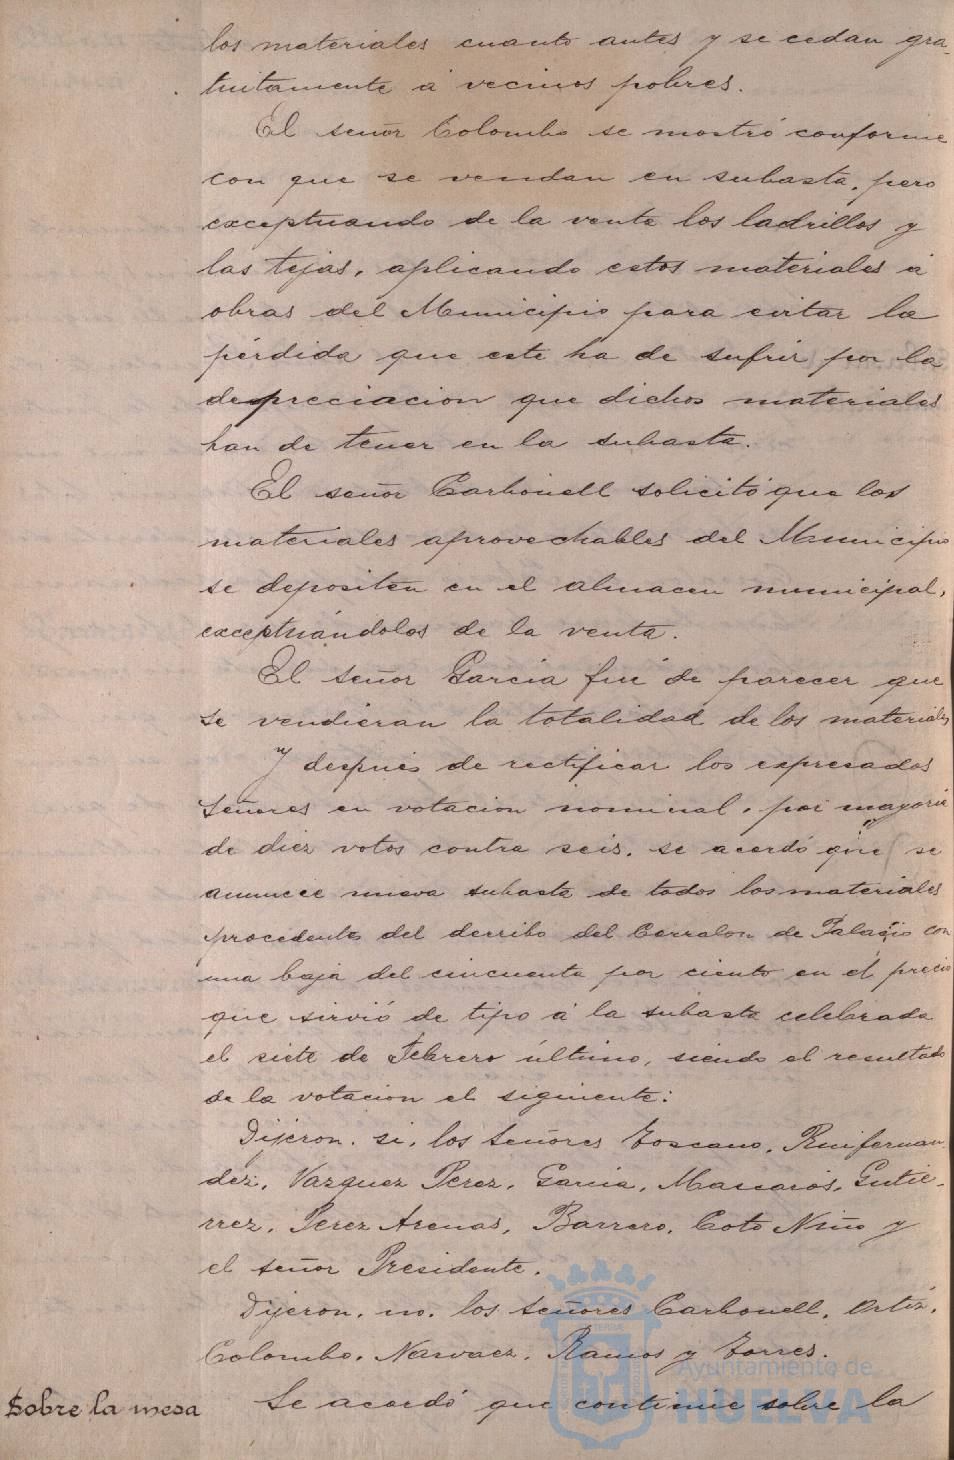 los materiales cuanto antes y se cedan gra-
tuitamente á vecinos pobres.
El señor Colombo se mostró conforme
con que se vendan en subasta, pero
exceptuando de la venta los ladrillos y
las tejas, aplicando estos materiales á
obras del Municipio para evitar la
pérdida que este ha de sufrir por la
depreciacion que dichos materiales
han de tener en la subasta.
El señor Carbonell solicitó que los
materiales aprovechables del Municipio
se depositen en el almacen municipal,
exceptuándolos de la venta.
El señor García fué de parecer que
se vendieran la totalidad de los materiales
Y después de rectificar los expresados
señores en votacion nominal, por mayoría
de diez votos contra seis, se acordó que se
anuncie nueva subasta de todos los materiales
procedentes del derribo del Corralon de Palacio con
una baja del cincuenta por ciento en el precio
que sirvió de tipo á la subasta celebrada
el siete de Febrero último, siendo el resultado
de la votacion el siguiente:
Dijeron, si, los señores Toscano, Ruifernan-
dez, Vazquez Perez, Garcia, Mascarós, Gutie-
rrez, Perez Arenas, Barrero, Coto Niño y
el señor Presidente.
Dijeron, no, los señores Carbonell, Ortiz,
Colombo, Narvaez, Ramos y Torres.
Sobre la mesa Se acordó que continue sobre la
Ayuntamiento de
HUELVA